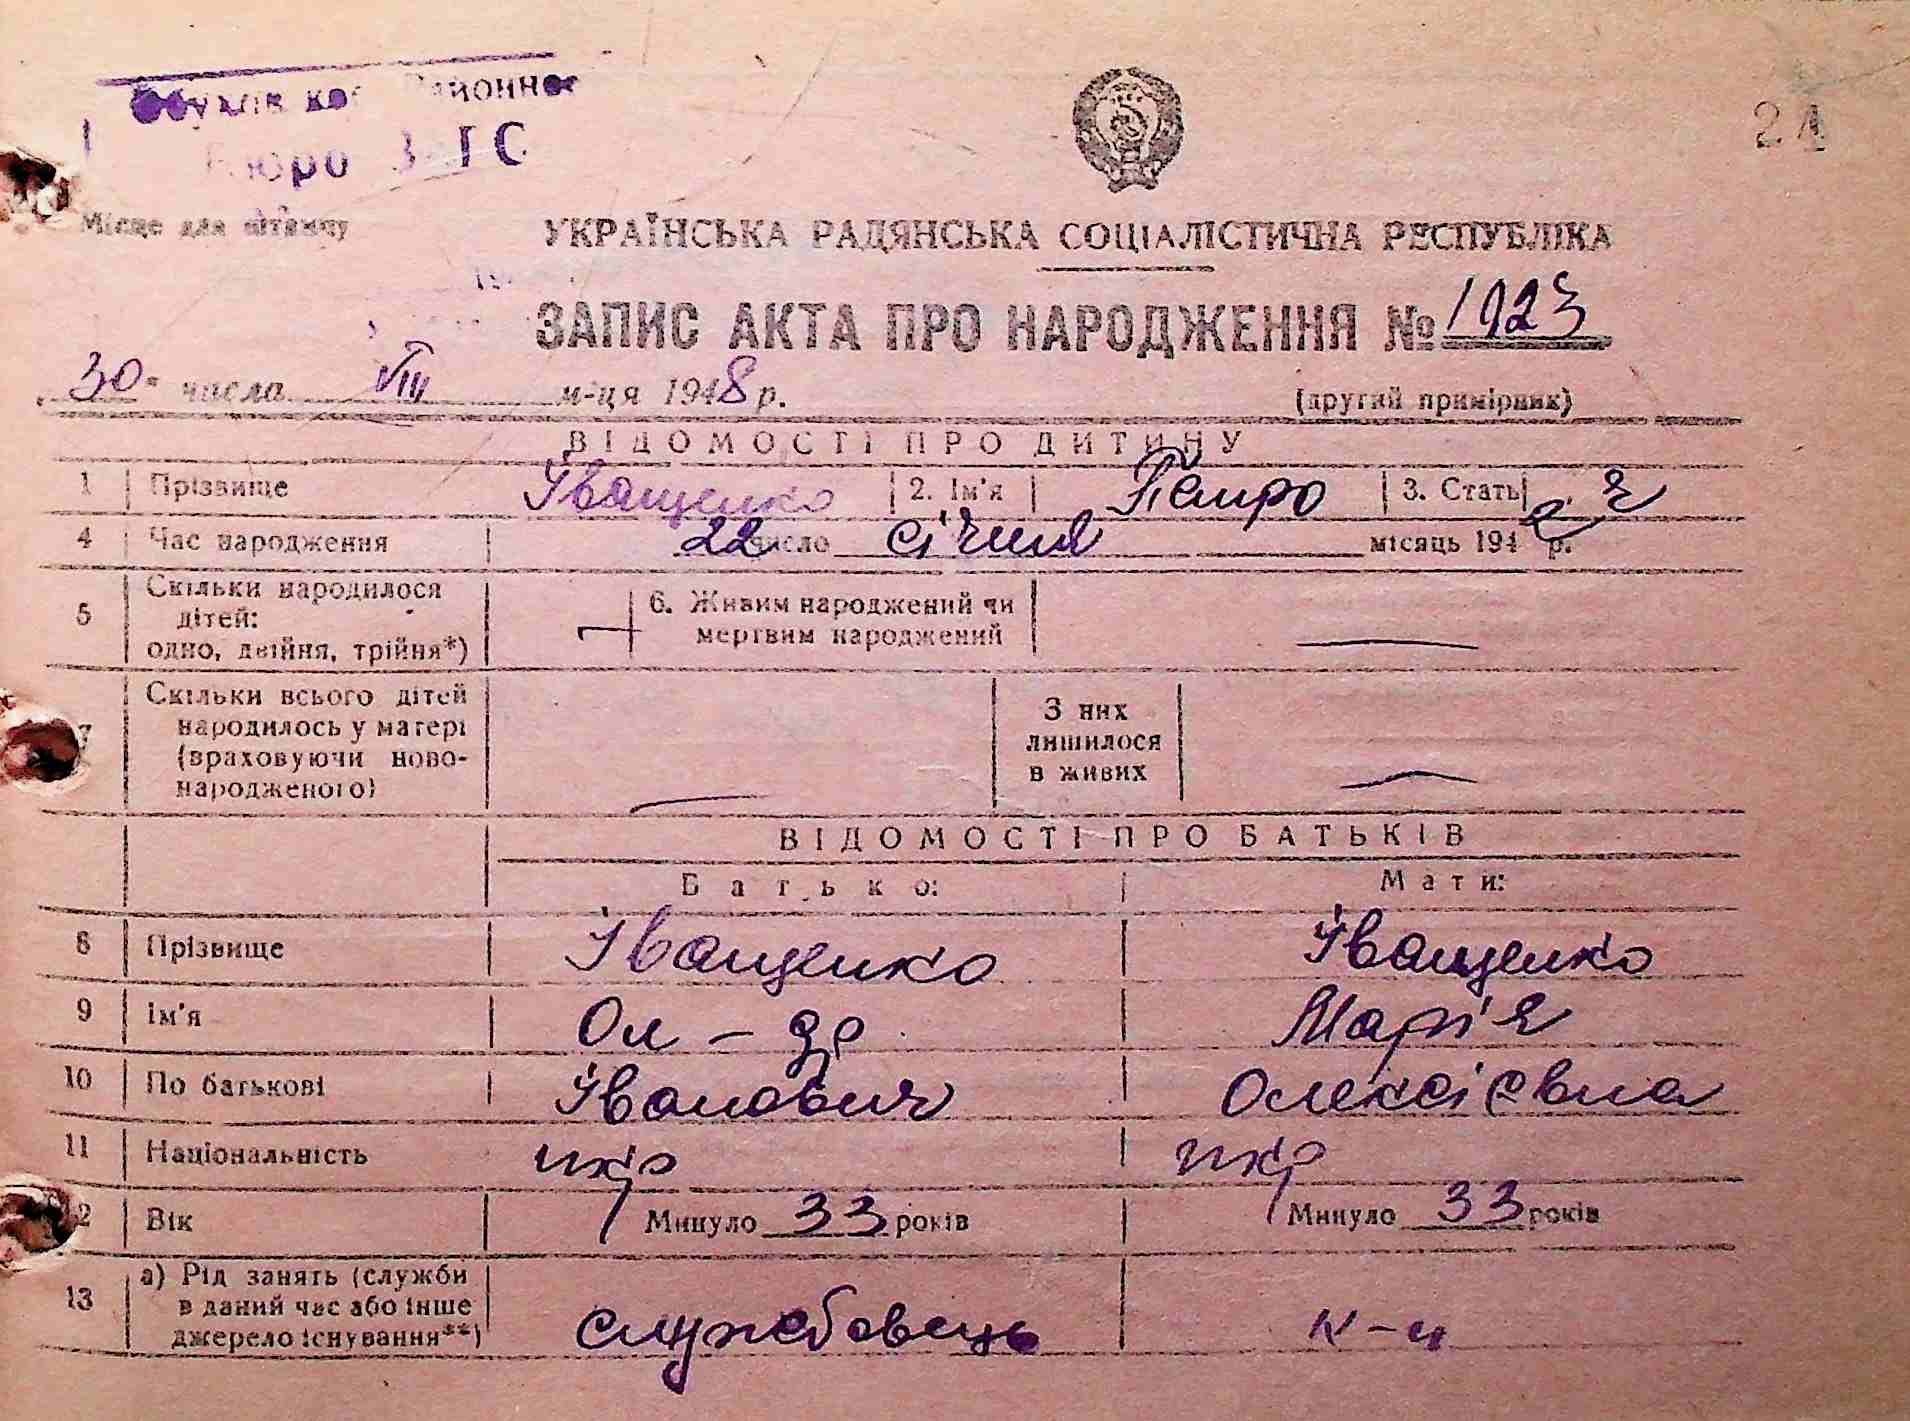 районне
Бюро ЗАГС
24
Місце для штампу
УКРАЇНСЬКА РАДЯНСЬКА СОЦІАЛІСТИЧНА РЕСПУБЛІКА
ЗАПИС АКТА ПРО НАРОДЖЕННЯ № 1923
30 числа VIII м-ця 1948 р. (другий примірник)
ВІДОМОСТІ ПРО ДИТИНУ
1 Прізвище Іващенко 2. Ім'я Петро 3. Стать ч
4 Час народження 22 число січня місяць 194 р.
5 Скільки народилося
дітей:
одно, двійня, трійня*)
6. Живим народжений чи
мертвим народжений
7 Скільки всього дітей
народилось у матері
(враховуючи ново-
народженого)
З них
лишилося
в живих
ВІДОМОСТІ ПРО БАТЬКІВ
Батько: Мати:
8 Прізвище Іващенко Іващенко
9 Ім'я Ол-др Марія
10 По батькові Іванович Олексієвна
11 Національність укр укр
12 Вік Минуло 33 років Минуло 33 років
13 а) Рід занять (служби
в даний час або інше
джерело існування**)
службовець к-ч